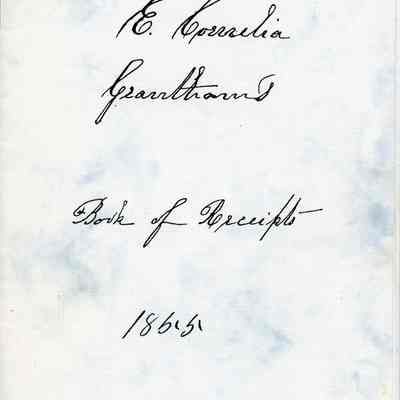 E. Cornelia
Grantham's
Book of Receipts
1855